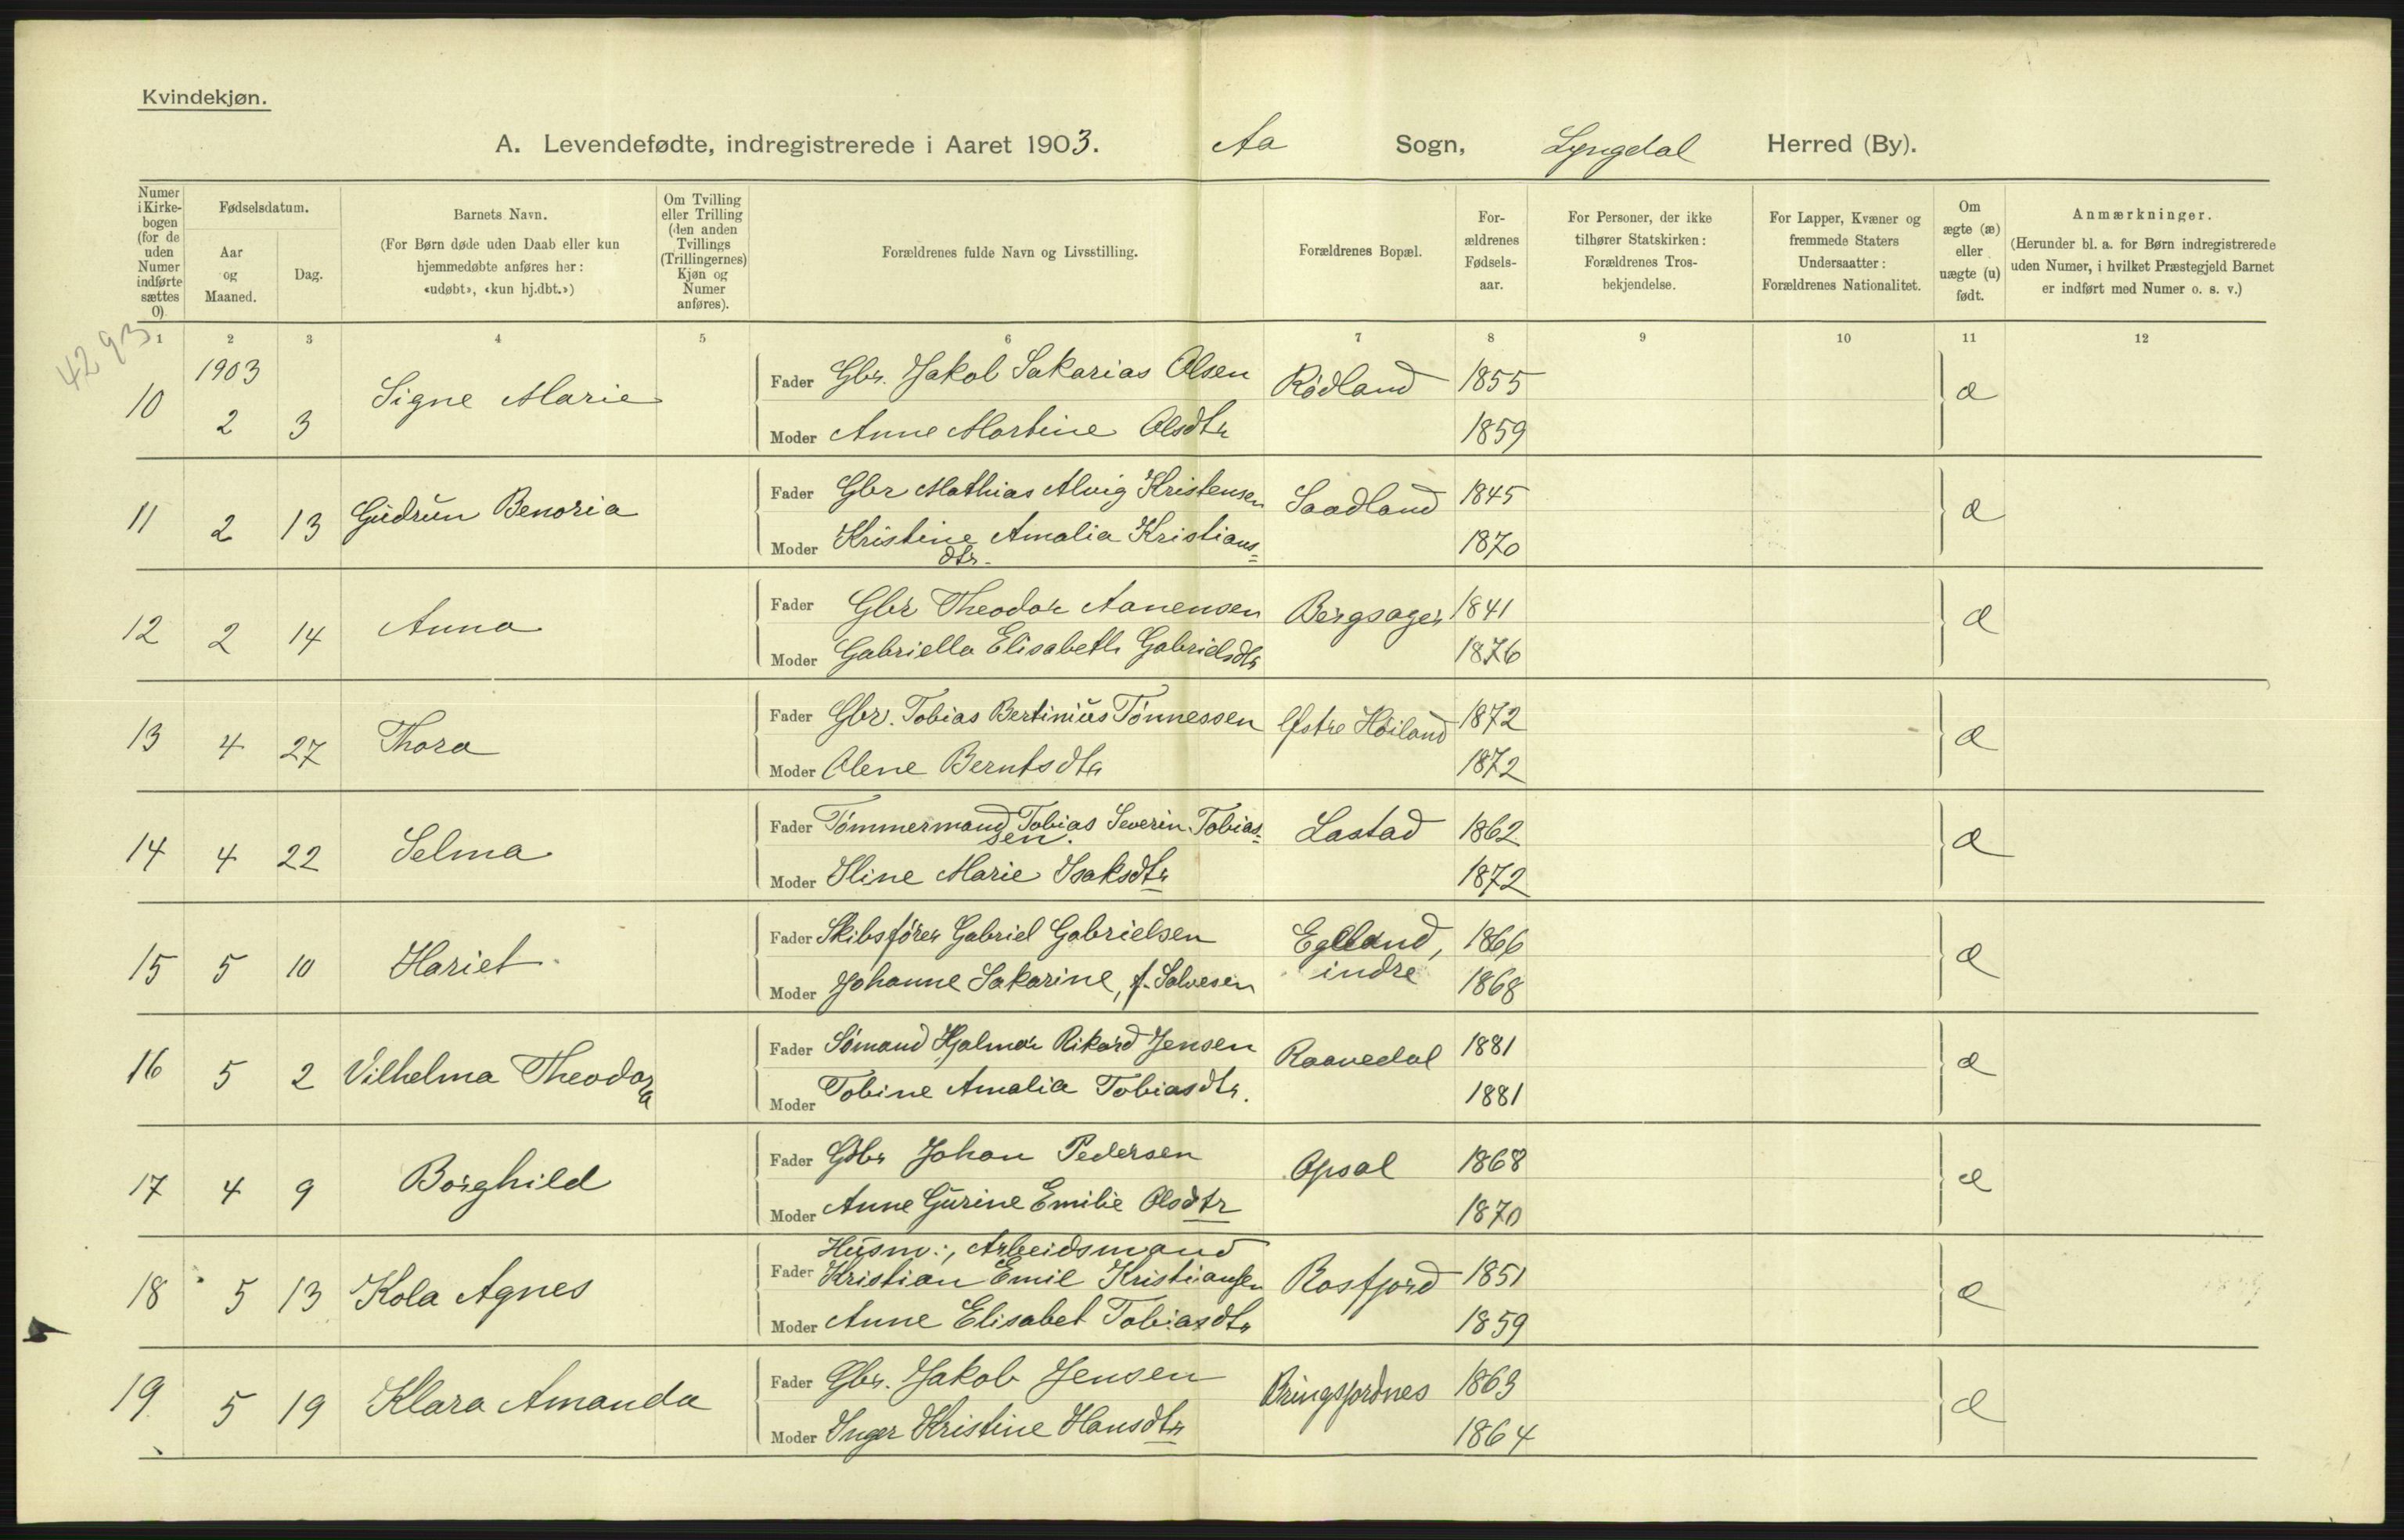 Kvindekjøn.
A. Levendefødte, indregistrerede i Aaret 1903. Aa Sogn, Lyngdal Herred (By).
Numer i Kirkebogen (for de uden Numer indførte sættes 0).
Fødselsdatum.
Aar og Maaned.
Dag.
Barnets Navn.
(For Børn døde uden Daab eller kun
hjemmedøbte anføres her:
«udøbt», «kun hj.dbt.»)
Om Tvilling
eller Trilling
(den anden
Tvillings
(Trillingernes)
Kjøn og
Numer
anføres).
Forældrenes fulde Navn og Livsstilling.
Forældrenes Bopæl.
For-
ældrenes
Fødsels-
aar.
For Personer, der ikke
tilhører Statskirken:
Forældrenes Tros-
bekjendelse.
For Lapper, Kvæner og
fremmede Staters
Undersaatter:
Forældrenes Nationalitet.
Om
ægte (æ)
eller
uægte (u)
født.
Anmærkninger.
(Herunder bl. a. for Børn indregistrerede
uden Numer, i hvilket Præstegjeld Barnet
er indført med Numer o. s. v.)
4293
1 2 3 4 5 6 7 8 9 10 11 12
1903
10 2 3 Signe Marie Fader Gbr. Jakob Sakarias Olsen Rödland 1855 æ
Moder Anne Martine Olsdtr 1859
11 2 13 Gudrun Benoria Fader Gbr Mathias Alvig Kristensen Saadland 1845 æ
Moder Kristine Amalia Kristians=
dtr. 1870
12 2 14 Anna Fader Gbr Theodor Aanensen Bergsager 1841 æ
Moder Gabriella Elisabeth Gabrielsdtr 1876
13 4 27 Thora Fader Gbr. Tobias Bertinius Tönnessen Östre Höiland 1872 æ
Moder Olene Berntsdtr 1872
14 4 22 Selma Fader Tömmermand Tobias Severin Tobias=
sen. Lastad 1862 æ
Moder Iline Marie Isaksdtr 1872
15 5 10 Hariet Fader Skibsförer Gabriel Gabrielsen Egeland, 1866 æ
indre
Moder Johanne Sakarine, f. Salvesen 1868
16 5 2 Vilhelma Theodora Fader Sömand Hjalmar Rikard Jensen Raavedal 1881 æ
Moder Tobine Amalia Tobiasdtr. 1881
17 4 9 Borghild Fader Gbr Johan Pedersen Opsal 1868 æ
Moder Anne Gurine Emilie Olsdtr 1870
Husm:, Arbeidsmand
18 5 13 Kola Agnes Fader Kristian Emil Kristiansen Rosfjord 1851 æ
Moder Anne Elisabet Tobiasdtr 1859
19 5 19 Klara Amanda Fader Gbr. Jakob Jensen Bringsjordnes 1863 æ
Moder Inger Kristine Hansdtr 1864